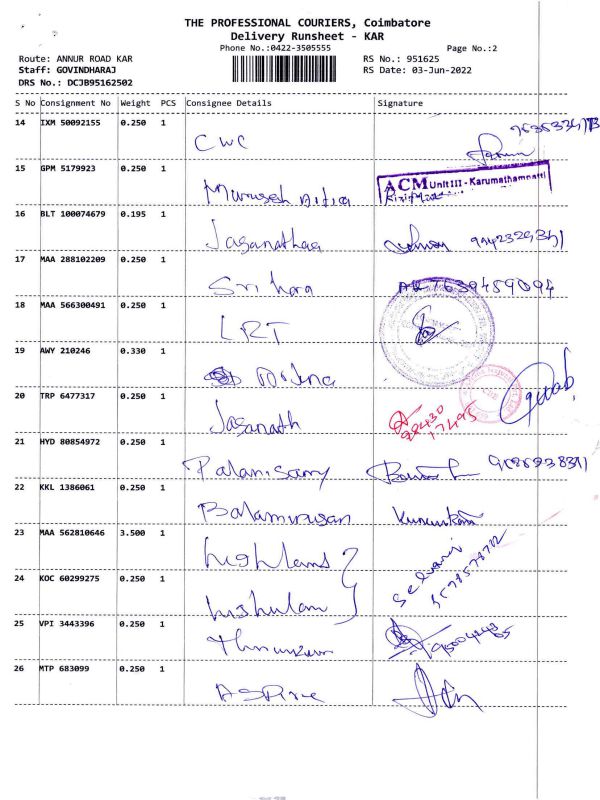 THE PROFESSIONAL COURIERS, Coimbatore
Delivery Runsheet - KAR
Phone No.:0422-3505555 Page No.:2
Route: ANNUR ROAD KAR RS No.: 951625
Staff: GOVINDHARAJ RS Date: 03-Jun-2022
DRS No.: DCJB95162502
S No Consignment No Weight PCS Consignee Details Signature
14 IXM 50092155 0.250 1
CWC
15 GPM 5179923 0.250 1
ACM Unit III - Karumathampatti
16 BLT 100074679 0.195 1
Jaganathaa
17 MAA 288102209 0.250 1
Sri hara 7639459094
18 MAA 566300491 0.250 1
LRT
19 AWY 210246 0.330 1
20 TRP 6477317 0.250 1
Jaganath 98430
17495
21 HYD 80854972 0.250 1
Palanisamy
22 KKL 1386061 0.250 1
Balamurugan
23 MAA 562810646 3.500 1
highlands
Selvari
24 KOC 60299275 0.250 1
25 VPI 3443396 0.250 1
26 MTP 683099 0.250 1